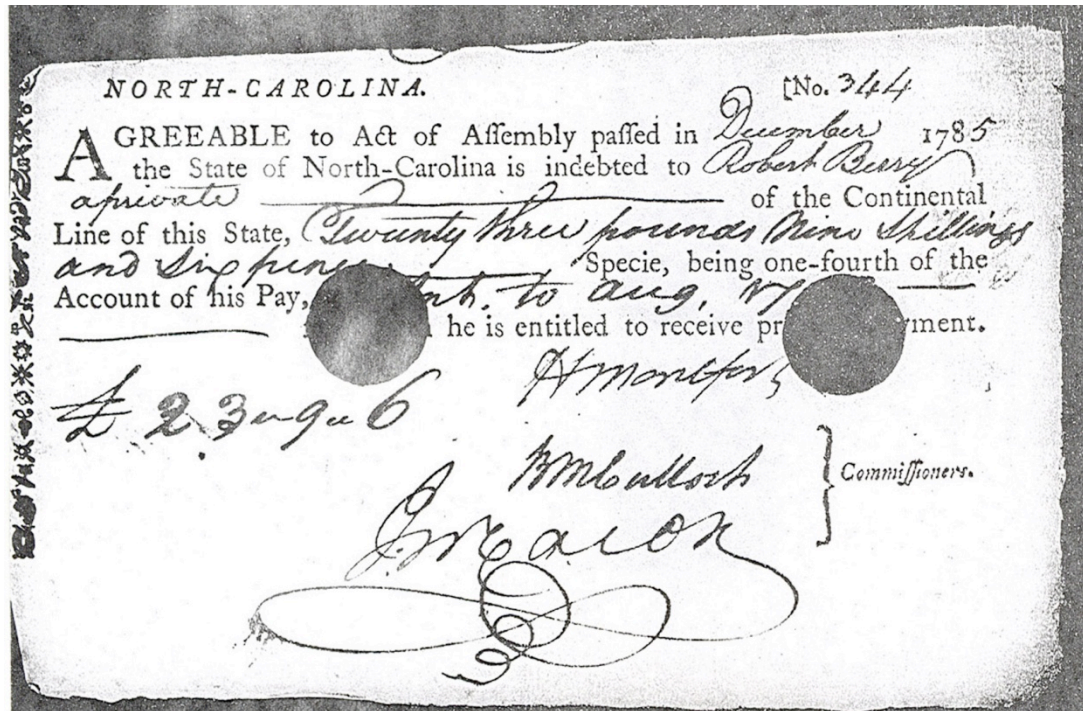 NORTH-CAROLINA. [No. 344
AGREEABLE to Act of Aſſembly paſſed in December 1785
the State of North-Carolina is indebted to Robert Berry
a private of the Continental
Line of this State, Twenty three pounds Nine Shillings
and Six pence Specie, being one-fourth of the
Account of his Pay, to Aug.
he is entitled to receive
£ 23 9 6
H Montfort
BMCulloch
Commiſſioners.
J. Macon